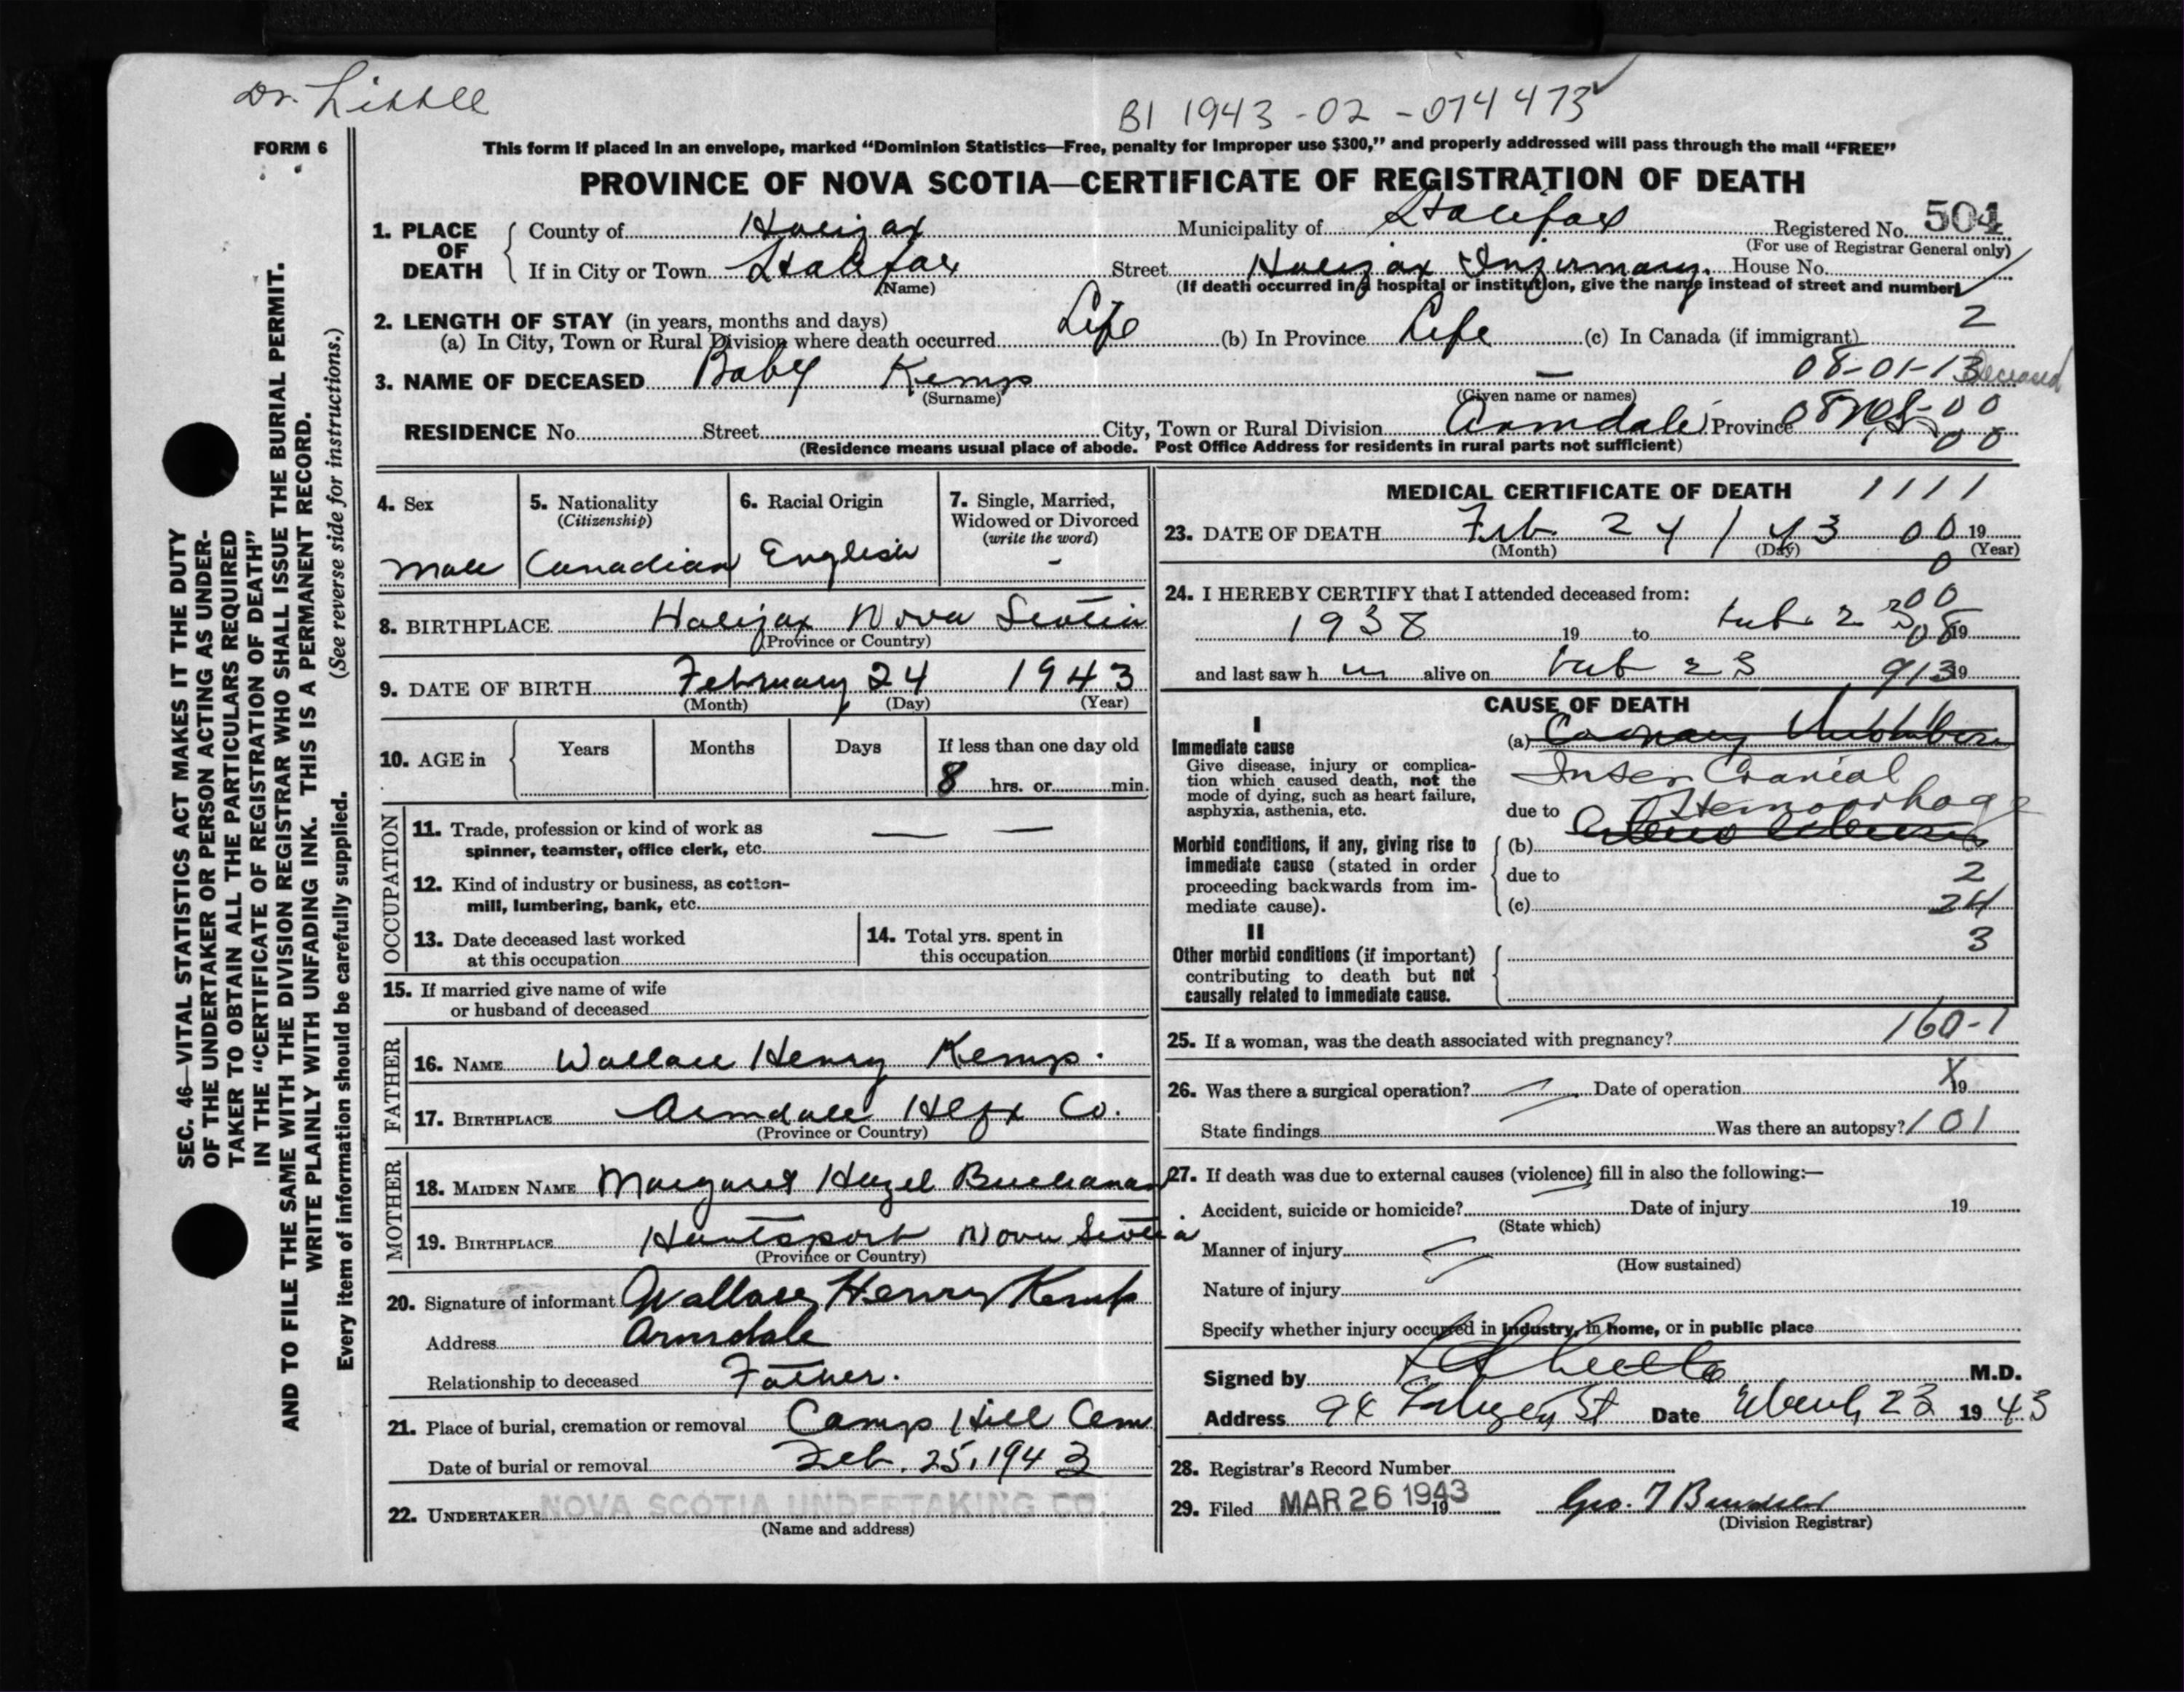 Dr. Littell
B1 1943-02-074473
FORM 6
This form if placed in an envelope, marked “Dominion Statistics—Free, penalty for improper use $300,” and properly addressed will pass through the mail “FREE”
PROVINCE OF NOVA SCOTIA—CERTIFICATE OF REGISTRATION OF DEATH
1. PLACE OF DEATH
County of Halifax Municipality of Halifax Registered No. 504
(For use of Registrar General only)
If in City or Town Halifax Street Halifax Infirmary. House No.
(Name) (If death occurred in a hospital or institution, give the name instead of street and number)
2. LENGTH OF STAY (in years, months and days)
(a) In City, Town or Rural Division where death occurred Life (b) In Province Life (c) In Canada (if immigrant) 2
3. NAME OF DECEASED Baby Kemp — 08-01-13 Deceased
(Surname) (Given name or names)
RESIDENCE No. Street City, Town or Rural Division Armdale Province N.S. 08-00
00
(Residence means usual place of abode. Post Office Address for residents in rural parts not sufficient)
4. Sex
Male
5. Nationality
(Citizenship)
Canadian
6. Racial Origin
English
7. Single, Married,
Widowed or Divorced
(write the word)
-
8. BIRTHPLACE Halifax Nova Scotia
(Province or Country)
9. DATE OF BIRTH February 24 1943
(Month) (Day) (Year)
10. AGE in
Years Months Days If less than one day old
8 hrs. or min.
OCCUPATION
11. Trade, profession or kind of work as
spinner, teamster, office clerk, etc. — —
12. Kind of industry or business, as cotton-
mill, lumbering, bank, etc.
13. Date deceased last worked
at this occupation
14. Total yrs. spent in
this occupation
15. If married give name of wife
or husband of deceased
FATHER
16. NAME Wallace Henry Kemp.
17. BIRTHPLACE Armdale Hlfx Co.
(Province or Country)
MOTHER
18. MAIDEN NAME Margaret Hazel Buchanan
19. BIRTHPLACE Hantsport Nova Scotia
(Province or Country)
20. Signature of informant Wallace Henry Kemp
Address Armdale
Relationship to deceased Father.
21. Place of burial, cremation or removal Camp Hill Cem
Date of burial or removal Feb. 25, 1943
22. UNDERTAKER NOVA SCOTIA UNDERTAKING CO.
(Name and address)
MEDICAL CERTIFICATE OF DEATH 1111
23. DATE OF DEATH Feb 24 / 43 00 19
(Month) (Day) (Year)
0
24. I HEREBY CERTIFY that I attended deceased from:
00
1938 19 to Feb 23 08 19
and last saw h m alive on Feb 23 913 19
CAUSE OF DEATH
I
Immediate cause
Give disease, injury or complica-
tion which caused death, not the
mode of dying, such as heart failure,
asphyxia, asthenia, etc.
(a) Coronary
Inter Cranial
due to Hemorrhage
Morbid conditions, if any, giving rise to
immediate cause (stated in order
proceeding backwards from im-
mediate cause).
(b)
due to 2
(c) 24
3
II
Other morbid conditions (if important)
contributing to death but not
causally related to immediate cause.
25. If a woman, was the death associated with pregnancy? 160-1
26. Was there a surgical operation? Date of operation X 19
State findings Was there an autopsy? 101
27. If death was due to external causes (violence) fill in also the following:—
Accident, suicide or homicide? Date of injury 19
(State which)
Manner of injury
(How sustained)
Nature of injury
Specify whether injury occurred in industry, in home, or in public place
Signed by M.D.
Address 94 St Date March 23 1943
28. Registrar's Record Number
29. Filed MAR 26 1943 19 Geo. T
(Division Registrar)
SEC. 46—VITAL STATISTICS ACT MAKES IT THE DUTY
OF THE UNDERTAKER OR PERSON ACTING AS UNDER-
TAKER TO OBTAIN ALL THE PARTICULARS REQUIRED
IN THE “CERTIFICATE OF REGISTRATION OF DEATH”
AND TO FILE THE SAME WITH THE DIVISION REGISTRAR WHO SHALL ISSUE THE BURIAL PERMIT.
WRITE PLAINLY WITH UNFADING INK. THIS IS A PERMANENT RECORD.
Every item of information should be carefully supplied. (See reverse side for instructions.)